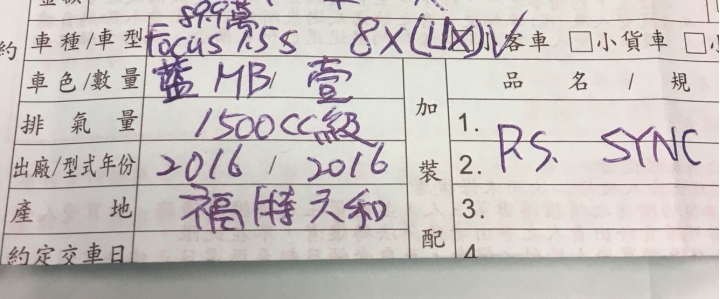 89.9萬
約 車種/車型 Focus 1.5S 8X(UX) 小客車 □小貨車 □
車色/數量 藍 MB/ 壹 加 品名/規
排氣量 1500CC級 1. RS. SYNC
出廠/型式年份 2016 / 2016 裝 2.
產地 福特六和 3.
約定交車日 配 4